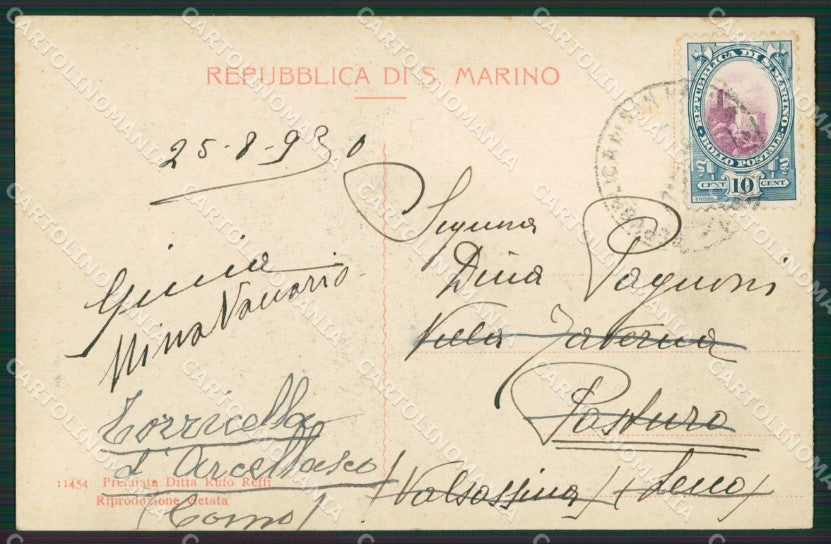 REPUBBLICA DI S. MARINO
REPUBBLICA DI S. MARINO
BOLLO POSTALE
CENT 10 CENT
25-8-930
Signora
Dina Pagnoni
Villa Taverna
Pasturo
(Valsassina) (Lecco)
Giulia
Nina Vanario
Torricella
d'Arcellasco
(Como)
11454 Premiata Ditta Rufo Reffi
Riproduzione vietata
CARTOLINOMANIA